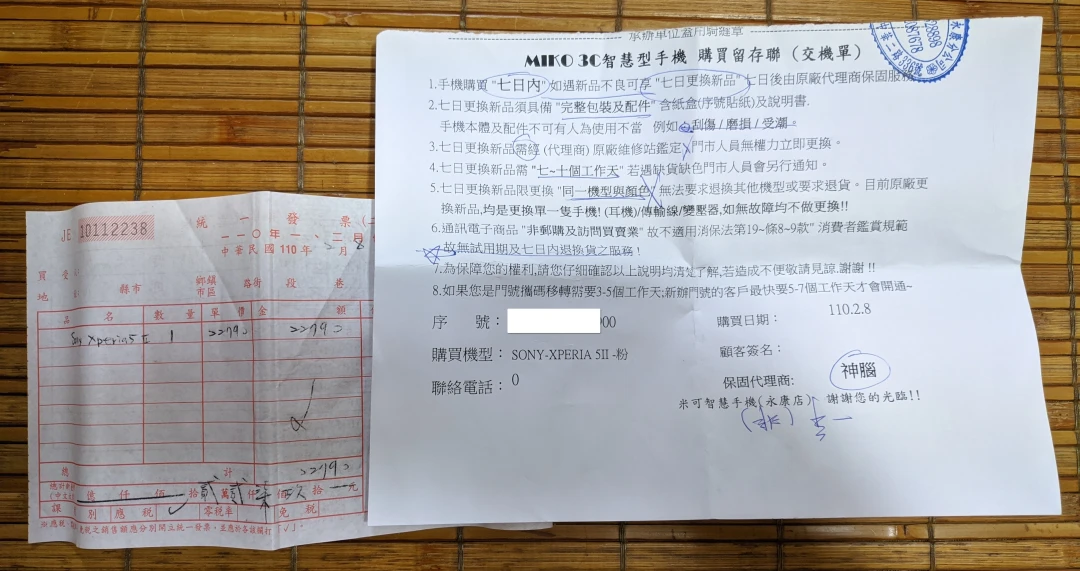 承辦單位蓋用騎縫章
MIKO 3C智慧型手機 購買留存聯 (交機單)
1.手機購買 "七日內" 如遇新品不良可享 "七日更換新品" 七日後由原廠代理商保固服
2.七日更換新品須具備 "完整包裝及配件" 含紙盒(序號貼紙)及說明書.
手機本體及配件不可有人為使用不當 例如 刮傷 / 磨損 / 受潮。
3.七日更換新品需經 (代理商) 原廠維修站鑑定 門市人員無權力立即更換。
4.七日更換新品需 "七~十個工作天" 若遇缺貨缺色門市人員會另行通知。
5.七日更換新品限更換 "同一機型與顏色" 無法要求退換其他機型或要求退貨。目前原廠更
換新品,均是更換單一隻手機! (耳機)/傳輸線/變壓器,如無故障均不做更換!!
6.通訊電子商品 "非郵購及訪問買賣業" 故不適用消保法第19~條8~9款" 消費者鑑賞規範
故無試用期及七日內退換貨之服務 !
7.為保障您的權利,請您仔細確認以上說明均清楚了解,若造成不便敬請見諒.謝謝 !!
8.如果您是門號攜碼移轉需要3-5個工作天;新辦門號的客戶最快要5-7個工作天才會開通~
序 號： 00
購買日期： 110.2.8
購買機型： SONY-XPERIA 5II -粉
顧客簽名：
聯絡電話： 0
保固代理商: 神腦
米可智慧手機(永康店) 謝謝您的光臨!!
JE 10112238
統 一 發 票 (二
一一○年一、二月
中華民國 110 年 2 月 8
買 受
地
縣市 鄉鎮市區 路街 段 巷
品 名 數 量 單 價 金 額
Sony Xperia 5 II 1 22790 22790
總 計 22790
億 仟 佰 拾 貳 萬 貳 仟 柒 佰 玖 拾 元
課 別 應 稅 ✓ 零稅率 免 稅
稅之銷售額應分別開立統一發票，並應於各該欄打「✓」。